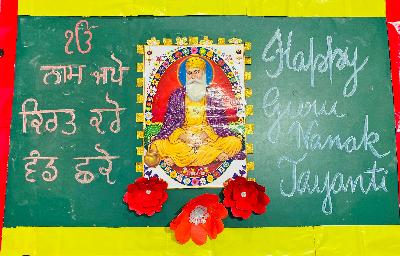 ੴ
ਨਾਮ ਜਪੋ
ਕਿਰਤ ਕਰੋ
ਵੰਡ ਛਕੋ
Happy
Guru
Nanak
Jayanti